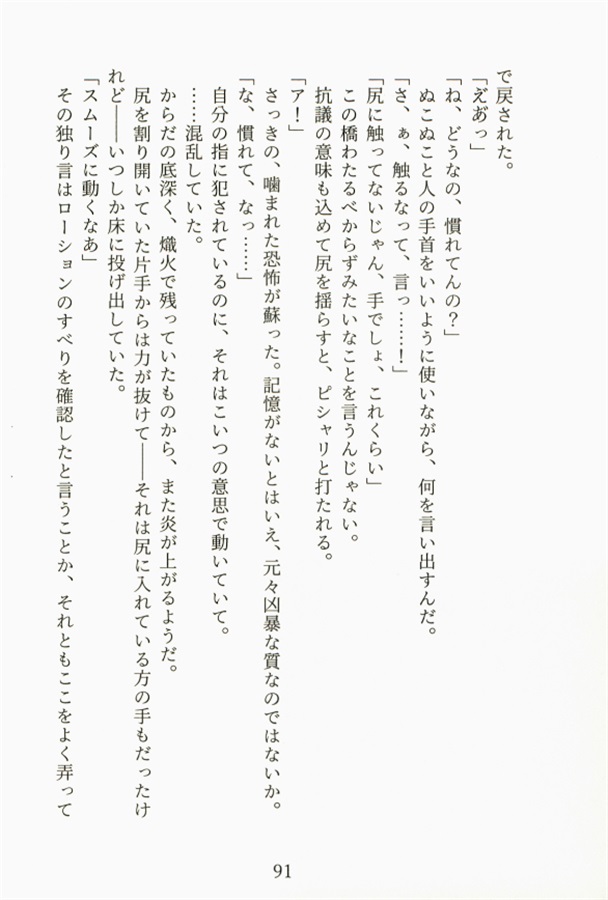 で戻された。
「え゙あ゙っ」
「ね、どうなの、慣れてんの？」
ぬこぬこと人の手首をいいように使いながら、何を言い出すんだ。
「さ、ぁ、触るなって、言っ……！」
「尻に触ってないじゃん、手でしょ、これくらい」
この橋わたるべからずみたいなことを言うんじゃない。
抗議の意味も込めて尻を揺らすと、ピシャリと打たれる。
「ア！」
さっきの、噛まれた恐怖が蘇った。記憶がないとはいえ、元々凶暴な質なのではないか。
「な、慣れて、なっ……」
自分の指に犯されているのに、それはこいつの意思で動いていて。
……混乱していた。
からだの底深く、熾火で残っていたものから、また炎が上がるようだ。
尻を割り開いていた片手からは力が抜けて――それは尻に入れている方の手もだったけ
れど――いつしか床に投げ出していた。
「スムーズに動くなあ」
その独り言はローションのすべりを確認したと言うことか、それともここをよく弄って
91